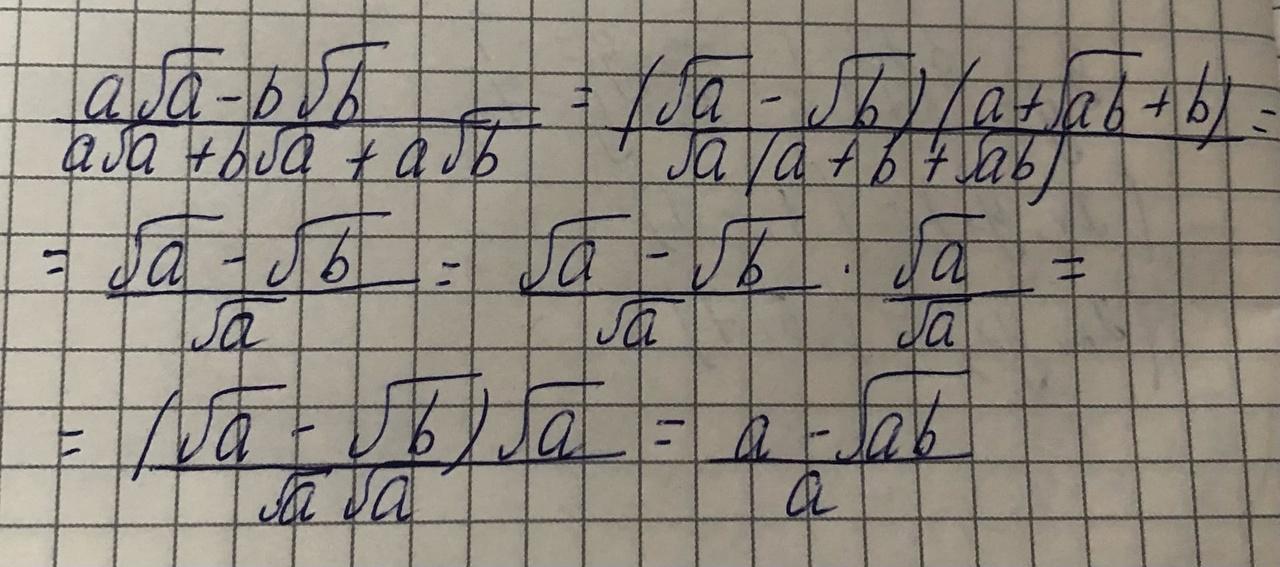 (a√a - b√b)/(a√a + b√a + a√b) = ((√a - √b)(a + √ab + b))/(√a(a + b + √ab)) =
= (√a - √b)/√a = (√a - √b)/√a · √a/√a =
= ((√a - √b)√a)/(√a √a) = (a - √ab)/a